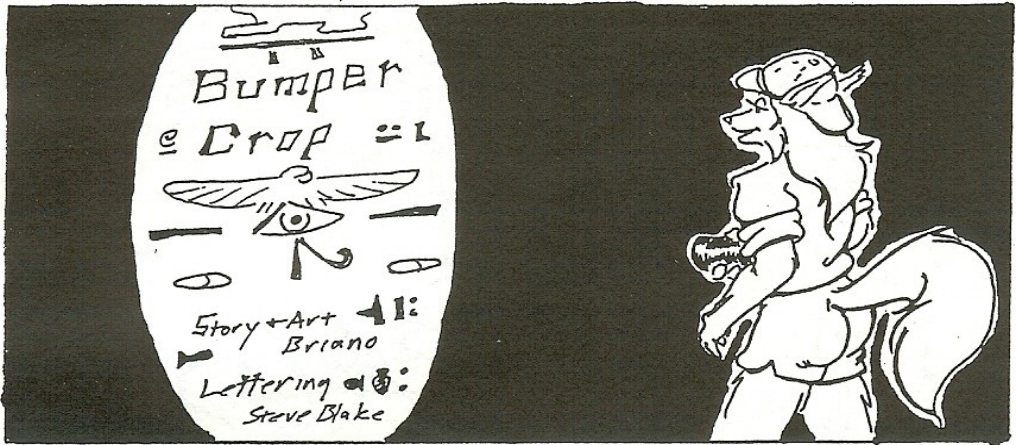 Bumper
Crop
Story + Art
Briano
Lettering
Steve Blake